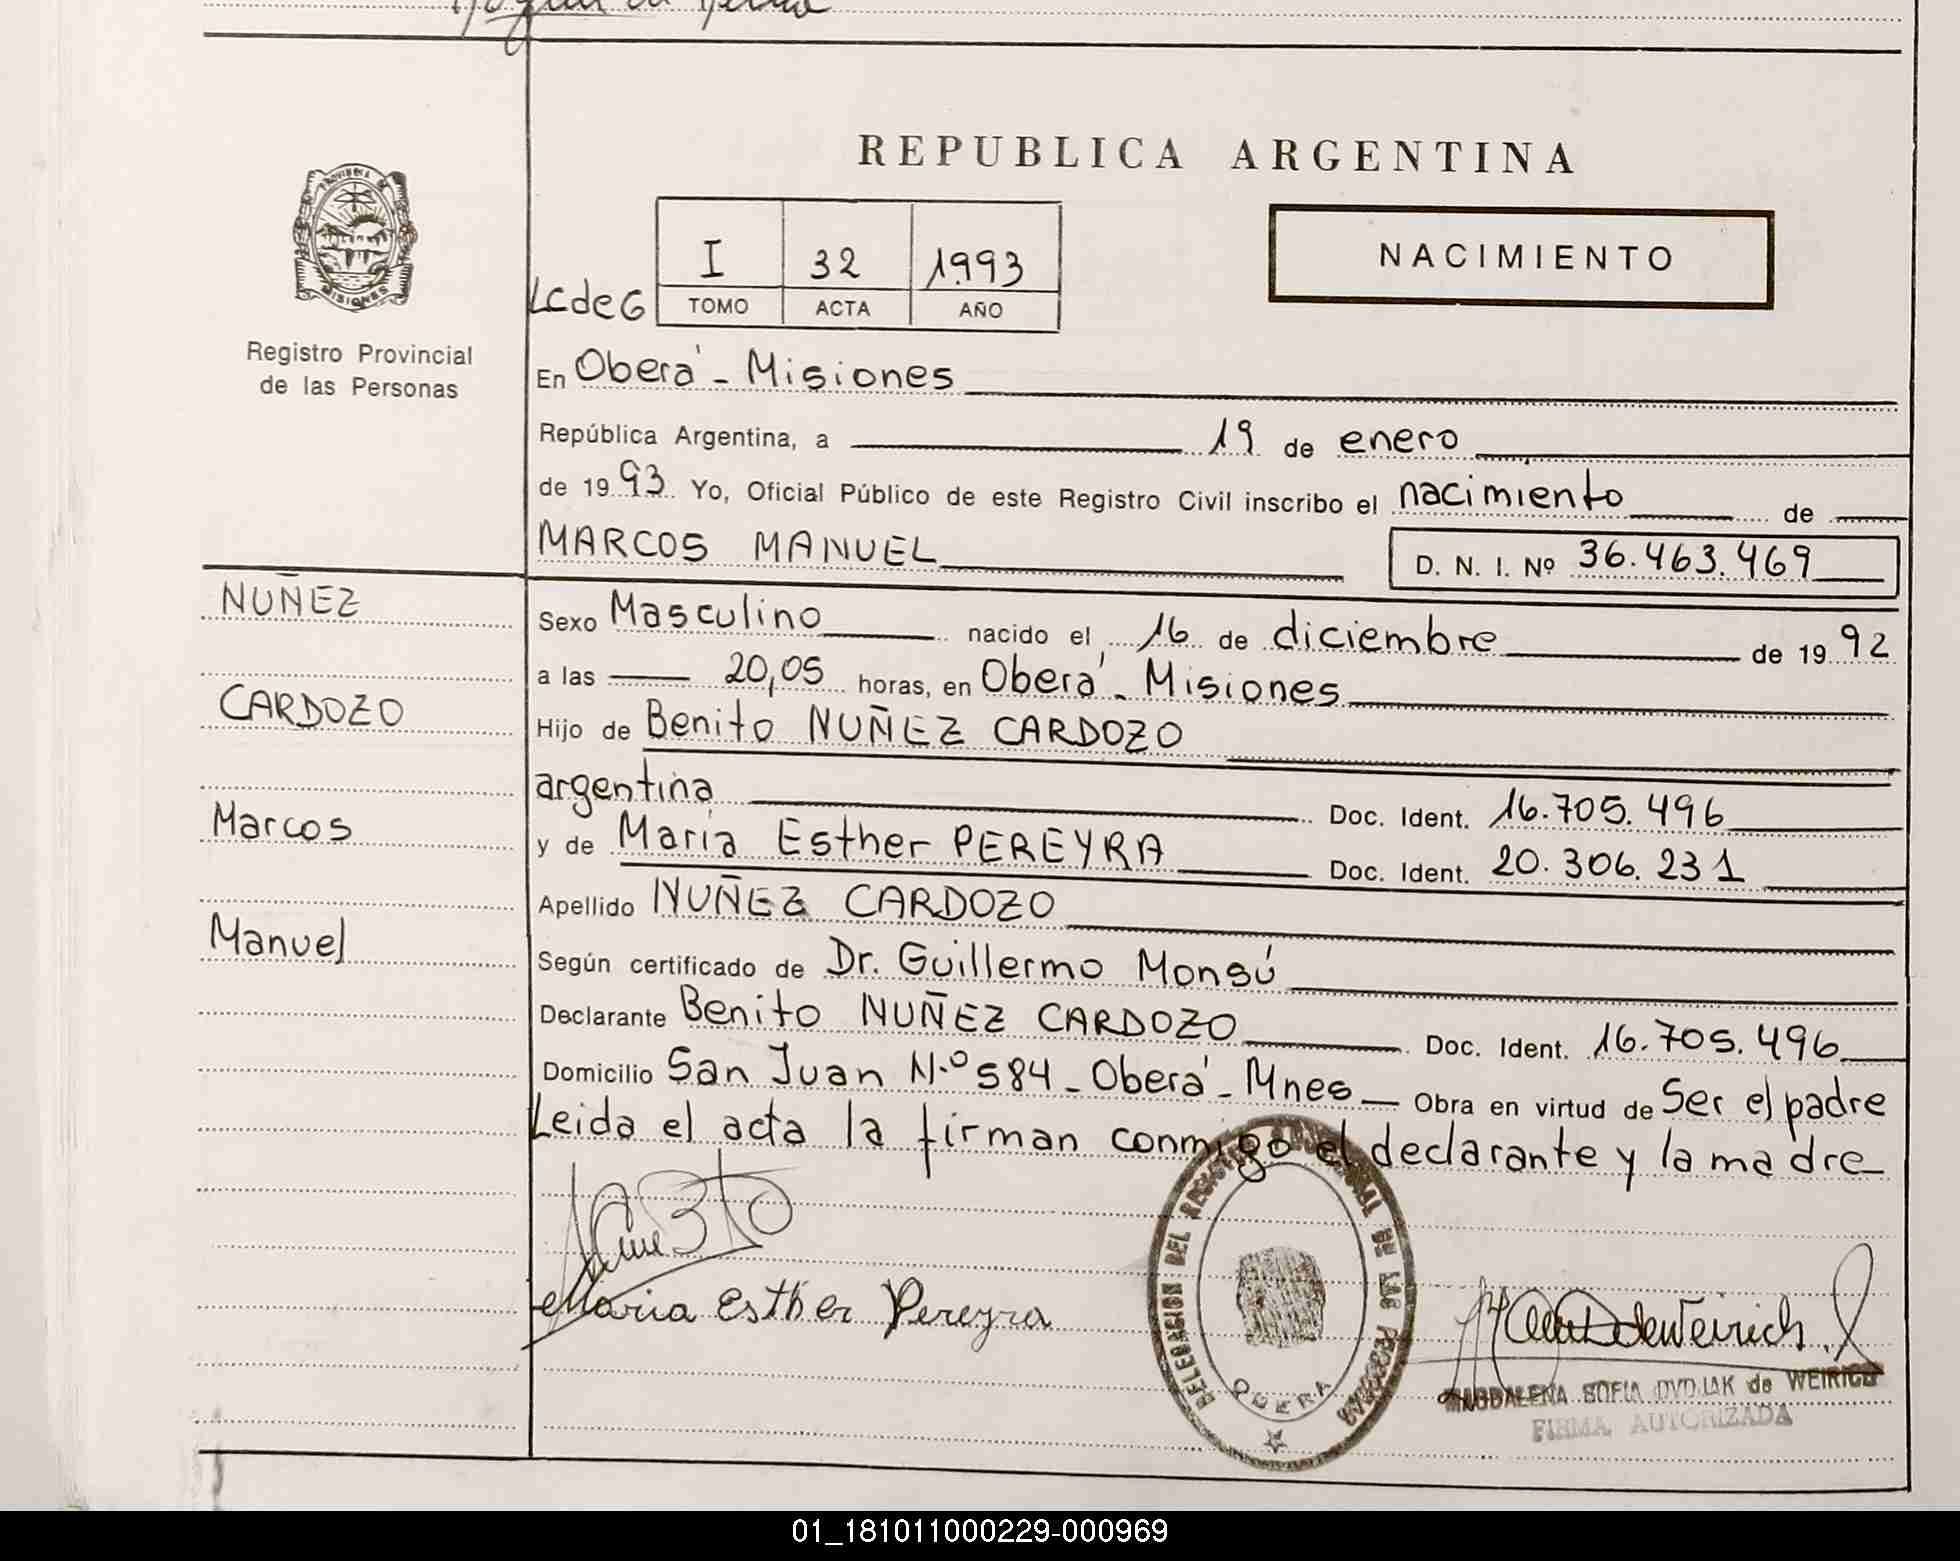 REPUBLICA ARGENTINA
PROVINCIA DE
MISIONES
Registro Provincial
de las Personas
I 32 1993
LCdeG TOMO ACTA AÑO
NACIMIENTO
En Oberá - Misiones
República Argentina, a 19 de enero
de 1993 Yo, Oficial Público de este Registro Civil inscribo el nacimiento de
MARCOS MANUEL D. N. I. Nº 36.463.469
NUÑEZ
CARDOZO
Marcos
Manuel
Sexo Masculino nacido el 16 de diciembre de 1992
a las 20,05 horas, en Oberá - Misiones
Hijo de Benito NUÑEZ CARDOZO
argentina Doc. Ident. 16.705.496
y de María Esther PEREYRA Doc. Ident. 20.306.231
Apellido NUÑEZ CARDOZO
Según certificado de Dr. Guillermo Monsú
Declarante Benito NUÑEZ CARDOZO Doc. Ident. 16.705.496
Domicilio San Juan N.º 584 - Oberá - Mnes Obra en virtud de Ser el padre
Leida el acta la firman conmigo el declarante y la madre
Maria Esther Pereyra
DELEGACION DEL REGISTRO PROVINCIAL DE LAS PERSONAS
OBERA
de Weirich
MAGDALENA SOFIA DVDIAK de WEIRICH
FIRMA AUTORIZADA
01_181011000229-000969